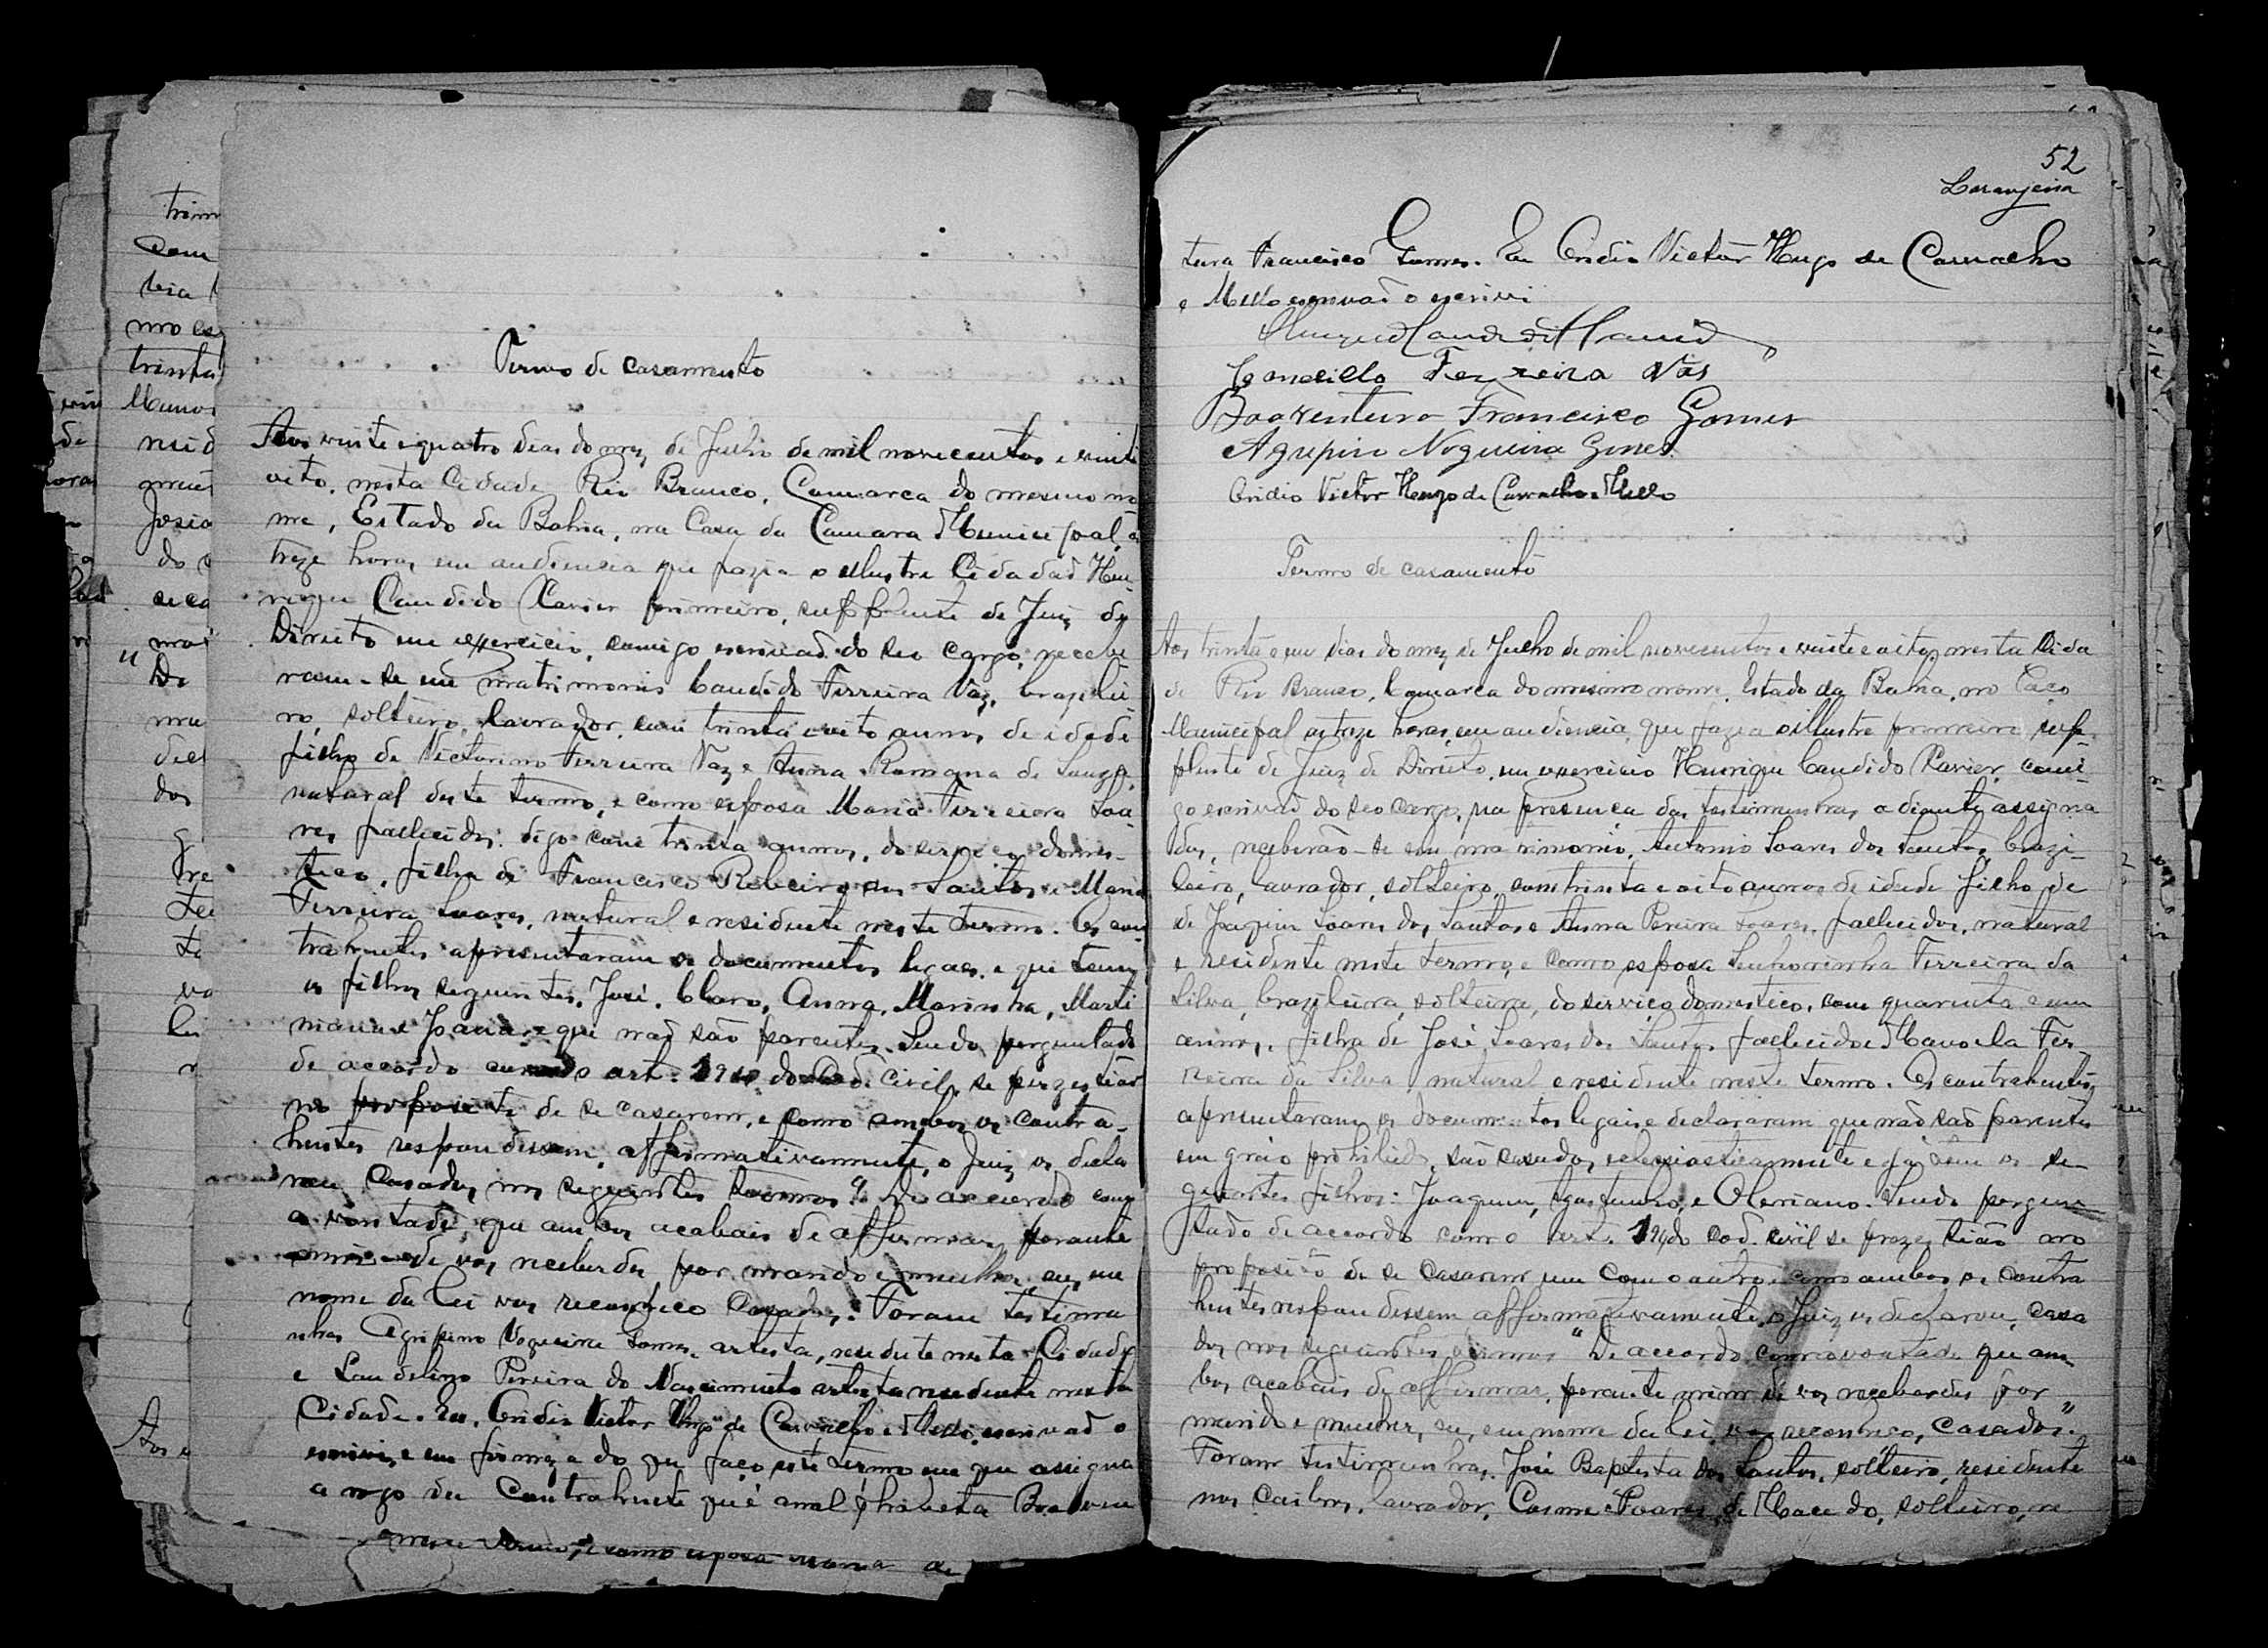 Termo de casamento
Aos vinte e quatro dias do mez de Julho de mil novecentos e vinte
oito, nesta Cidade Rio Branco, Comarca do mesmo no
me, Estado da Bahia, na Casa da Camara Municipal, as
treze horas em audiencia que fazia o illustre Cidadaõ Hen
rique Candido Xavier primeiro, supplente de Juiz de
Direito em exercicio, comigo escrivaõ do seo cargo, recebe
ram-se em matrimonio Candido Ferreira Vaz, brazilei
ro, solteiro, lavrador, com trinta e oito annos de idade
filho de Victorino Ferreira Vaz e Anna Romana de Souza,
natural deste termo, e como esposa Maria Ferreira Soa
res fallecidos: digo com trinta annos, do serviço domes-
tico, filha de Francisco Ribeiro dos Santos e Maria
Ferreira Soares, natural e residente neste termo. Os con
trahentes apresentaram os documentos legaes e que tem
os filhos seguintes, José, Claro, Anna, Marinha, Marti
niana e Joana, e que naõ são parentes. Sendo perguntado
de accordo com o art. 194 do Cod. Civil, se persestião
no proposito de se casarem, e como ambos os contra-
hentes respondessem, affirmativamente, o Juiz os decla
rou Casados, nos seguintes termos "De accordo com
a vontade, que ambos acabais de affirmar, perante
mim de vos receberdes por marido e mulher, eu, em
nome da lei vos reconheço Casados. Foram testimu
nhas Agripino Nogueira Gomes, artista, residente nesta Cidade
e Laudelino Pereira do Nascimento artista residente nesta
Cidade. Eu, Ovidio Victor Hugo de Carvalho e Mello, escrivaõ o
escrivi, e em firmeza do que faço este termo em que assigna
a rogo da Contrahente que é analphabeta Boaven
neste termo, e como esposa
52
Laranjeira
tura Francisco Gomes. Eu Ovidio Victor Hugo de Carvalho
e Mello escrivaõ o escrivi
Candido Ferreira Vas
Boaventura Francisco Gomes
Agripino Nogueira Gomes
Ovidio Victor Hugo de Carvalho e Mello
Termo de casamento
Aos trinta e um dias do mez de Julho de mil novecentos e vinte e oito, nesta Cida
de Rio Branco, Comarca do mesmo nome, Estado da Bahia, no Paço
Municipal as treze horas, em audiencia, que fazia o illustre primeiro sup-
plente de Juiz de Direito, em exercicio Henrique Candido Xavier, comi-
go escrivaõ do seo cargo, na presença das testimunhas adiante assigna
das, receberão-se em matrimonio, Antonio Soares dos Santos, brazi-
leiro, lavrador, solteiro, com trinta e oito annos de idade filho de
de Joaquim Soares dos Santos e Anna Pereira Soares, fallecidos, natural
e residente neste termo, e como esposa Senhorinha Ferreira da
Silva, brazileira, solteira, do serviço domestico, com quarenta e um
annos, filha de José Soares dos Santos fallecido e Manoela Fer-
reira da Silva, natural e residente neste termo. Os contrahentes
apresentaram os documentos legais e declararam que naõ saõ parentes
em gráo prohibido, são casados, eclesiasticamente e já têm os se-
guintes filhos: Joaquim, e Oleriano. Sendo pergun
tado de accordo com o art. 194 do cod. civil se prezestião no
proposito de se casarem um com o outro e como ambos os contra
hentes respondessem affirmativamente, o Juiz os declarou, casa
dos nos seguintes termos "De accordo com a vontade que am-
bos acabais de affirmar, perante mim de vos receberdes por
marido e mulher, eu, em nome da lei, vos reconheço, Casados."
Foram testimunhas, José Baptista dos Santos, solteiro, residente
nos Caibros, lavrador, Cosme Soares de Macedo, solteiro, re